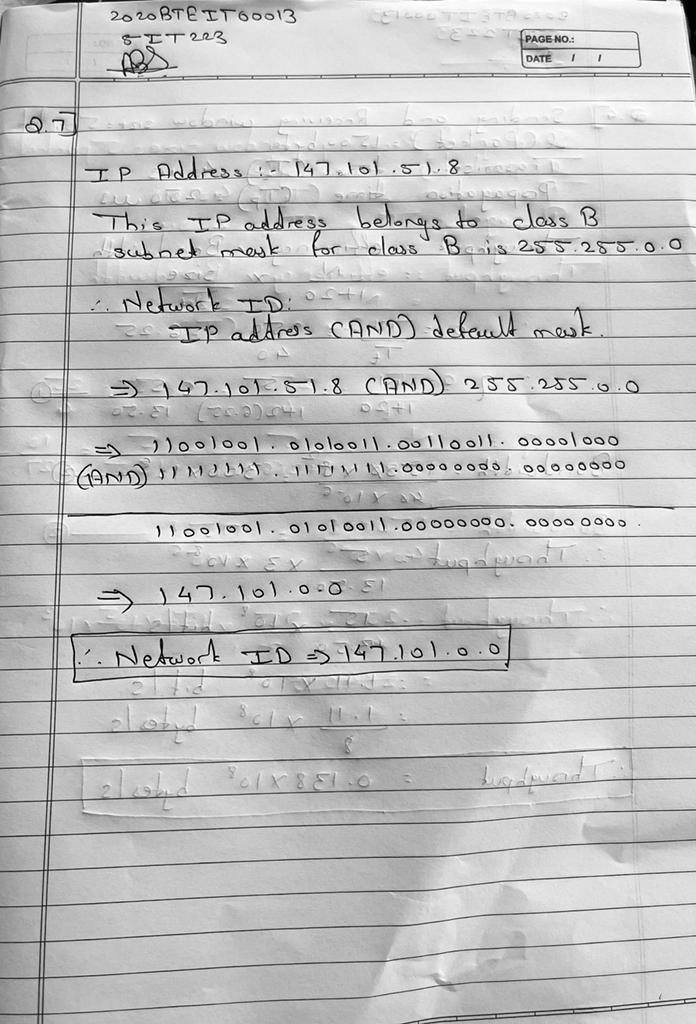 2020BTEIT00013
SIT223
PAGE NO.:
DATE / /
Q.7]
IP Address :- 147.101.51.8
This IP address belongs to class B
subnet mask for class B is 255.255.0.0
∴ Network ID:
IP address (AND) default mask.
⇒ 147.101.51.8 (AND) 255.255.0.0
⇒ 11001001.01010011.00110011.00001000
(AND) 11111111.11111111.00000000.00000000
11001001.01010011.00000000.00000000.
⇒ 147.101.0.0
∴ Network ID ⇒ 147.101.0.0